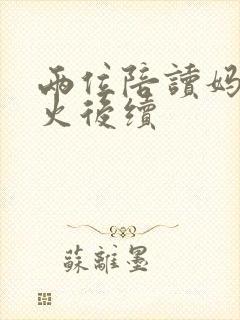 兩位陪讀媽
火後續
蘇離墨